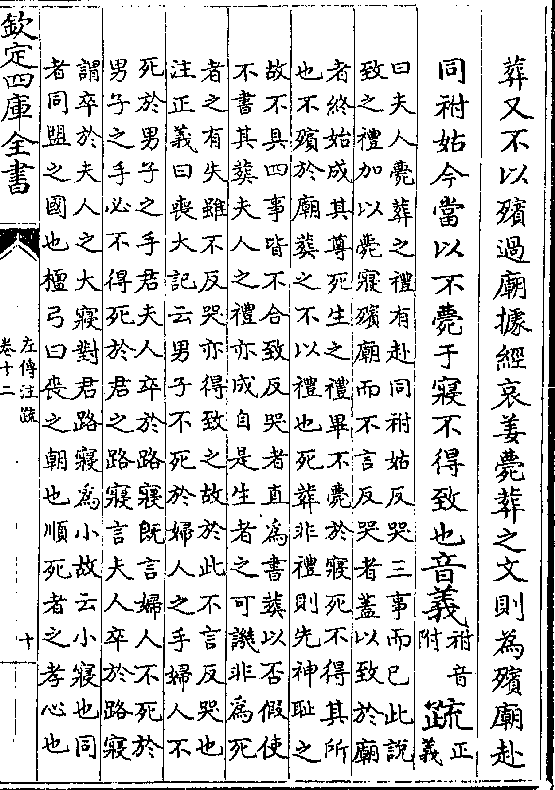 葬又不以殯過廟據經哀姜薨葬之文則為殯廟赴
同祔姑今當以不薨于寢不得致也音義祔音附疏正義
曰夫人薨葬之禮有赴同祔姑反哭三事而已此說
致之禮加以薨寢殯廟而不言反哭者蓋以致於廟
者終始成其尊死生之禮畢不薨於寢死不得其所
也不殯於廟葬之不以禮也死葬非禮則先神恥之
故不具四事皆不合致反哭者直為書葬以否假使
不書其葬夫人之禮亦成自是生者之可譏非為死
者之有失雖不反哭亦得致之故於此不言反哭也
注正義曰喪大記云男子不死於婦人之手婦人不
死於男子之手君夫人卒於路寢既言婦人不死於
男子之手必不得死於君之路寢言夫人卒於路寢
謂卒於夫人之大寢對君路寢為小故云小寢也同
者同盟之國也檀弓曰喪之朝也順死者之孝心也
欽定四庫全書
左傳注疏
卷十二
十